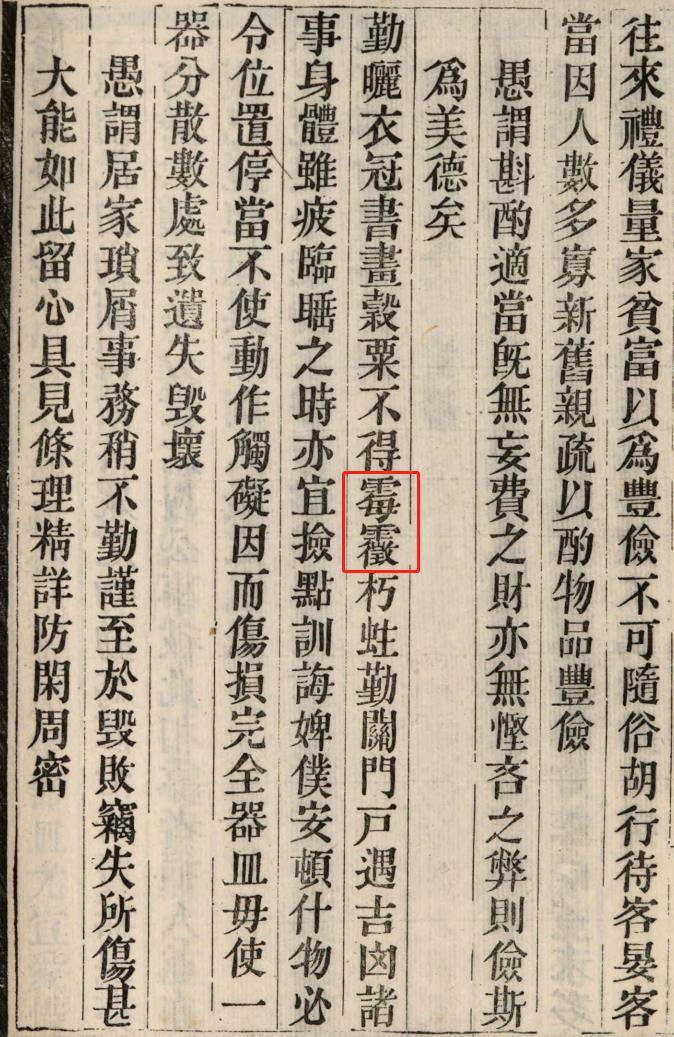 往來禮儀量家貧富以爲豐儉不可隨俗胡行待客晏客
當因人數多寡新舊親疏以酌物品豐儉
愚謂斟酌適當旣無妄費之財亦無慳吝之弊則儉斯
爲美德矣
勤曬衣冠書畫穀粟不得霉黴朽蛀勤關門戸遇吉凶諸
事身體雖疲臨睡之時亦宜撿點訓誨婢僕安頓什物必
令位置停當不使動作觸礙因而傷損完全器皿毋使一
器分散數處致遺失毁壞
愚謂居家瑣屑事務稍不勤謹至於毁敗竊失所傷甚
大能如此留心具見條理精詳防閑周密